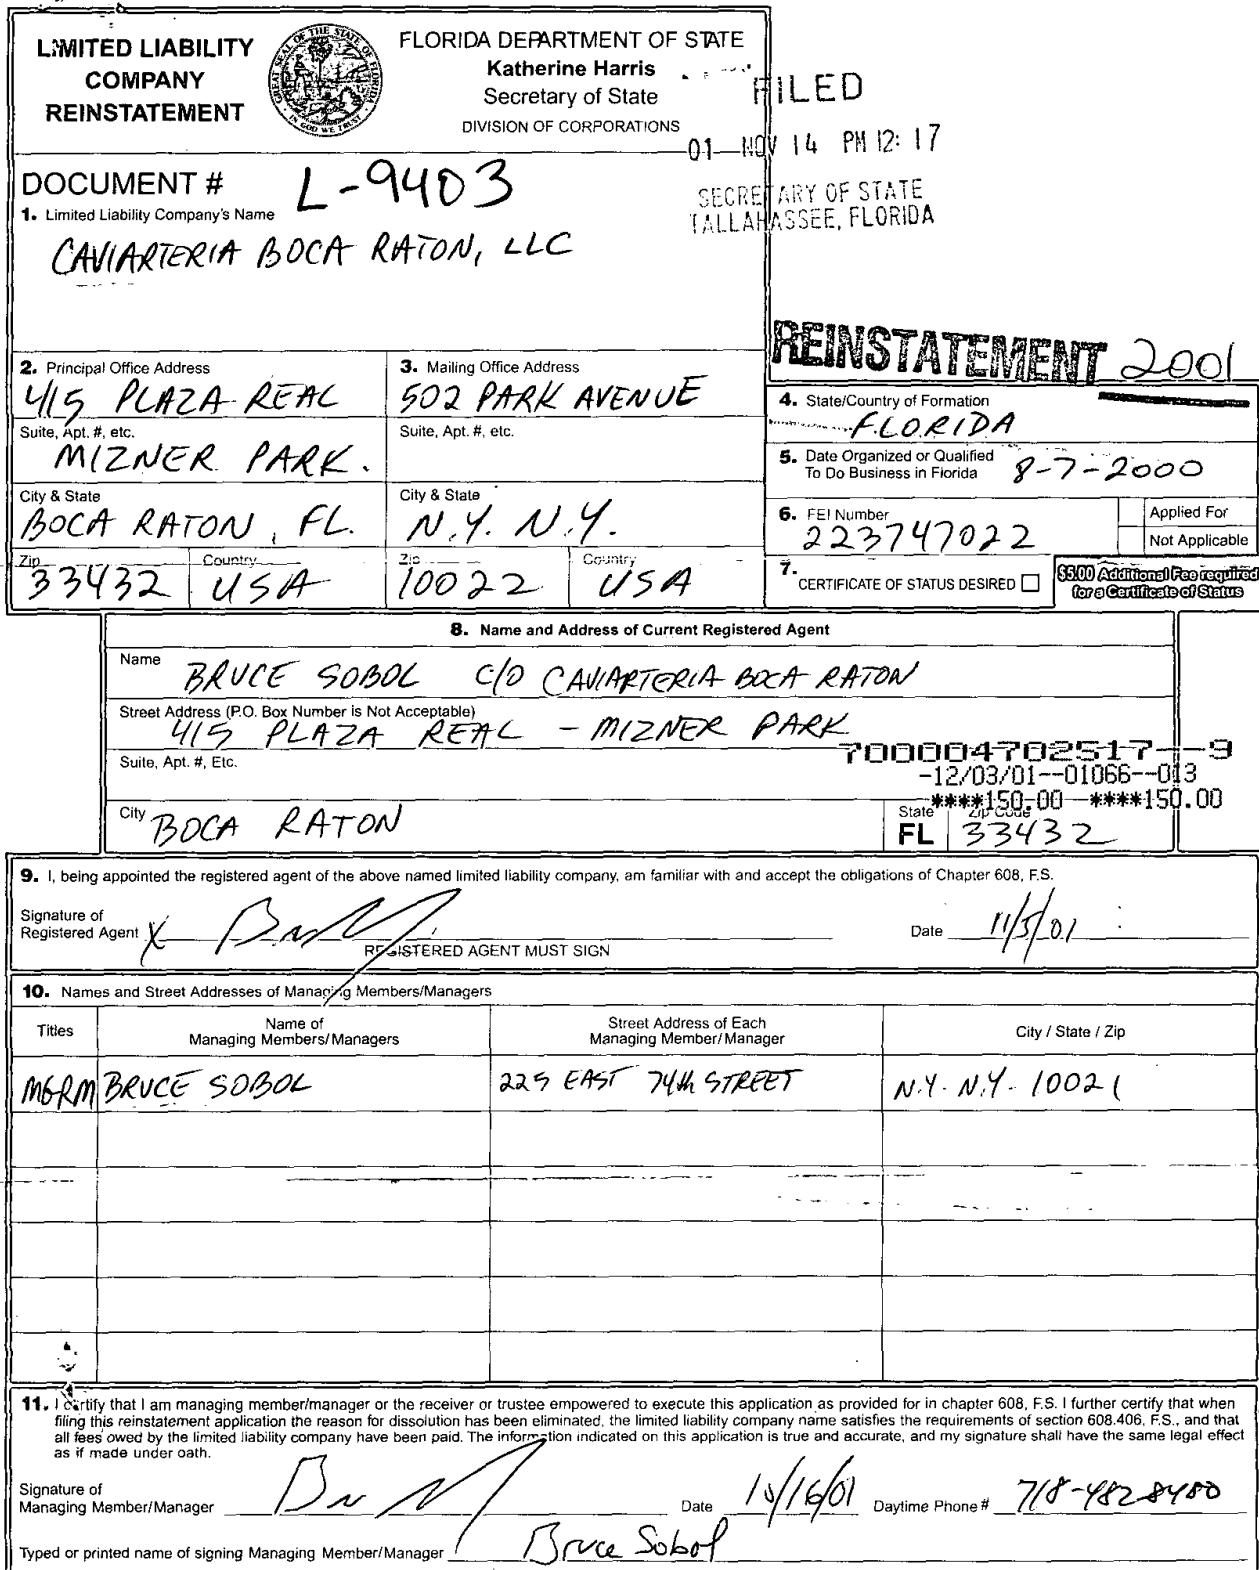 LIMITED LIABILITY
COMPANY
REINSTATEMENT
GREAT SEAL OF THE STATE OF FLORIDA
IN GOD WE TRUST
FLORIDA DEPARTMENT OF STATE
Katherine Harris
Secretary of State
DIVISION OF CORPORATIONS
FILED
01 NOV 14 PM 12:17
SECRETARY OF STATE
TALLAHASSEE, FLORIDA
DOCUMENT # L-9403
1. Limited Liability Company's Name
CAVIARTERIA BOCA RATON, LLC
REINSTATEMENT 2001
2. Principal Office Address
415 PLAZA REAL
Suite, Apt. #, etc.
MIZNER PARK.
City & State
BOCA RATON, FL.
Zip
33432
Country
USA
3. Mailing Office Address
502 PARK AVENUE
Suite, Apt. #, etc.
City & State
N.Y. N.Y.
Zip
10022
Country
USA
4. State/Country of Formation
FLORIDA
5. Date Organized or Qualified
To Do Business in Florida 8-7-2000
6. FEI Number
223747022
Applied For
Not Applicable
7. CERTIFICATE OF STATUS DESIRED
$5.00 Additional Fee required
for a Certificate of Status
8. Name and Address of Current Registered Agent
Name BRUCE SOBOL C/O CAVIARTERIA BOCA RATON
Street Address (P.O. Box Number is Not Acceptable)
415 PLAZA REAL - MIZNER PARK
700004702517--9
-12/03/01--01066--013
****150.00 ****150.00
Suite, Apt. #, Etc.
City BOCA RATON
State
FL
Zip Code
33432
9. I, being appointed the registered agent of the above named limited liability company, am familiar with and accept the obligations of Chapter 608, F.S.
Signature of
Registered Agent X
REGISTERED AGENT MUST SIGN
Date 11/5/01
10. Names and Street Addresses of Managing Members/Managers
Titles
Name of
Managing Members/Managers
Street Address of Each
Managing Member/Manager
City / State / Zip
MGRM BRUCE SOBOL 225 EAST 74th STREET N.Y. N.Y. 10021
11. I certify that I am managing member/manager or the receiver or trustee empowered to execute this application as provided for in chapter 608, F.S. I further certify that when
filing this reinstatement application the reason for dissolution has been eliminated, the limited liability company name satisfies the requirements of section 608.406, F.S., and that
all fees owed by the limited liability company have been paid. The information indicated on this application is true and accurate, and my signature shall have the same legal effect
as if made under oath.
Signature of
Managing Member/Manager
Date 10/16/01 Daytime Phone # 718-4828480
Typed or printed name of signing Managing Member/Manager Bruce Sobol